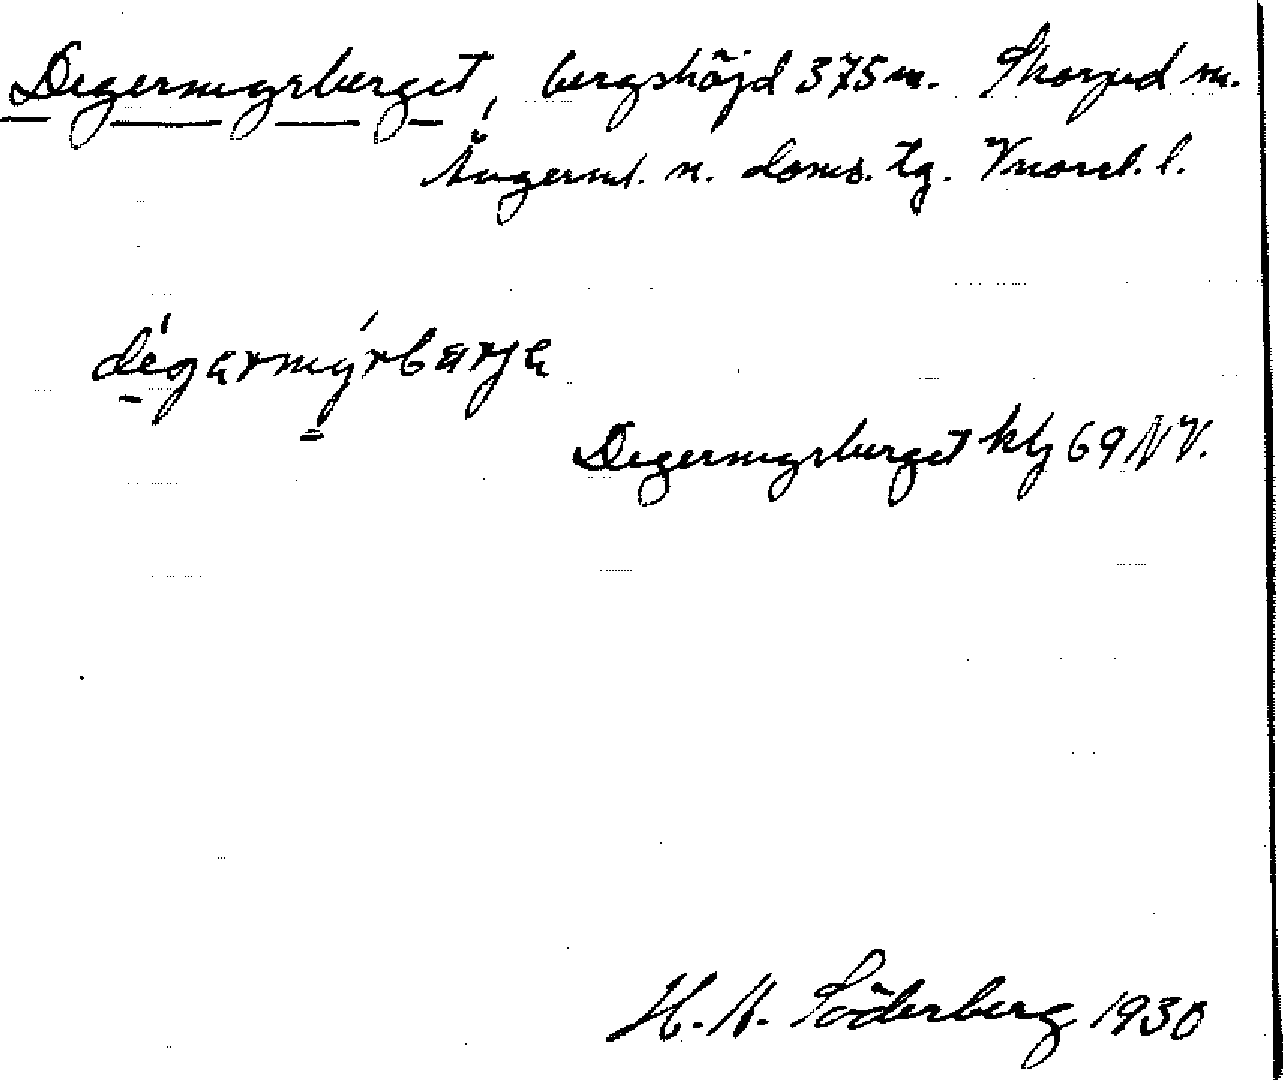 Degermyrberget, bergshöjd 375 m. Skorped sn.
Ångerml. n. doms. tg. Vnorrl. l.
dégarmýrbärja
Degermyrberget kbl 69 NV.
H. N. Söderberg 1930